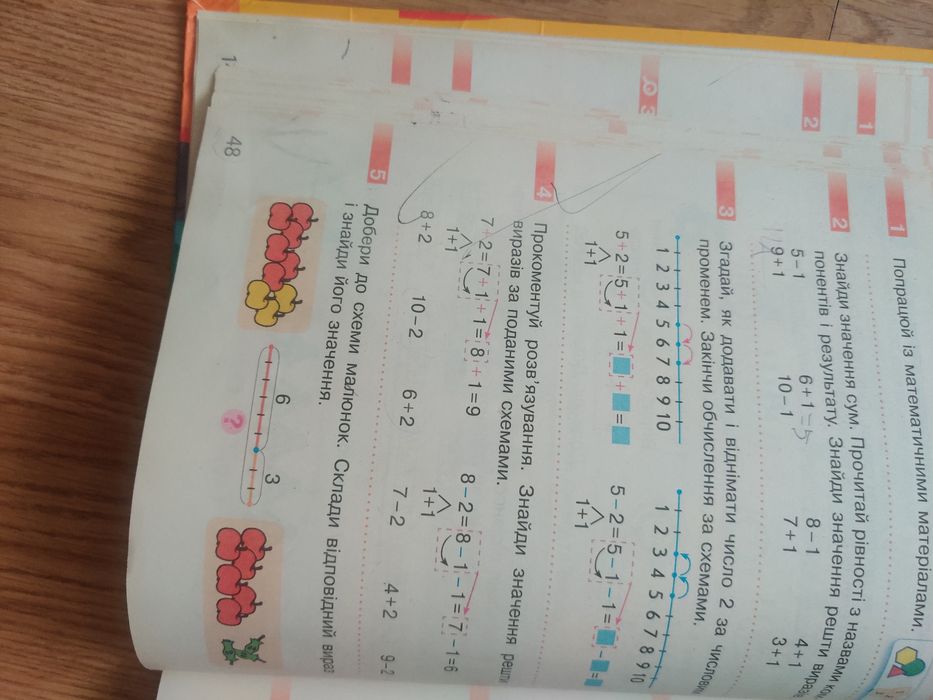 1 Попрацюй із математичними матеріалами.
2 Знайди значення сум. Прочитай рівності з назвами
понентів і результату. Знайди значення решти
5 − 1 6 + 1 = 5 8 − 1 4 + 1
9 + 1 10 − 1 7 + 1 3 + 1
3 Згадай, як додавати і віднімати число 2 за
променем. Закінчи обчислення за схемами.
1 2 3 4 5 6 7 8 9 10 1 2 3 4 5 6 7 8 9 10
5 + 2 = 5 + 1 + 1 = + = 5 − 2 = 5 − 1 − 1 = − =
1+1 1+1
4 Прокоментуй розв'язування. Знайди значення решти
виразів за поданими схемами.
7 + 2 = 7 + 1 + 1 = 8 + 1 = 9 8 − 2 = 8 − 1 − 1 = 7 − 1 = 6
1+1 1+1
8 + 2 10 − 2 6 + 2 7 − 2 4 + 2 9 − 2
5 Добери до схеми малюнок. Склади відповідний вираз
і знайди його значення.
6 3
?
48
1
2
3